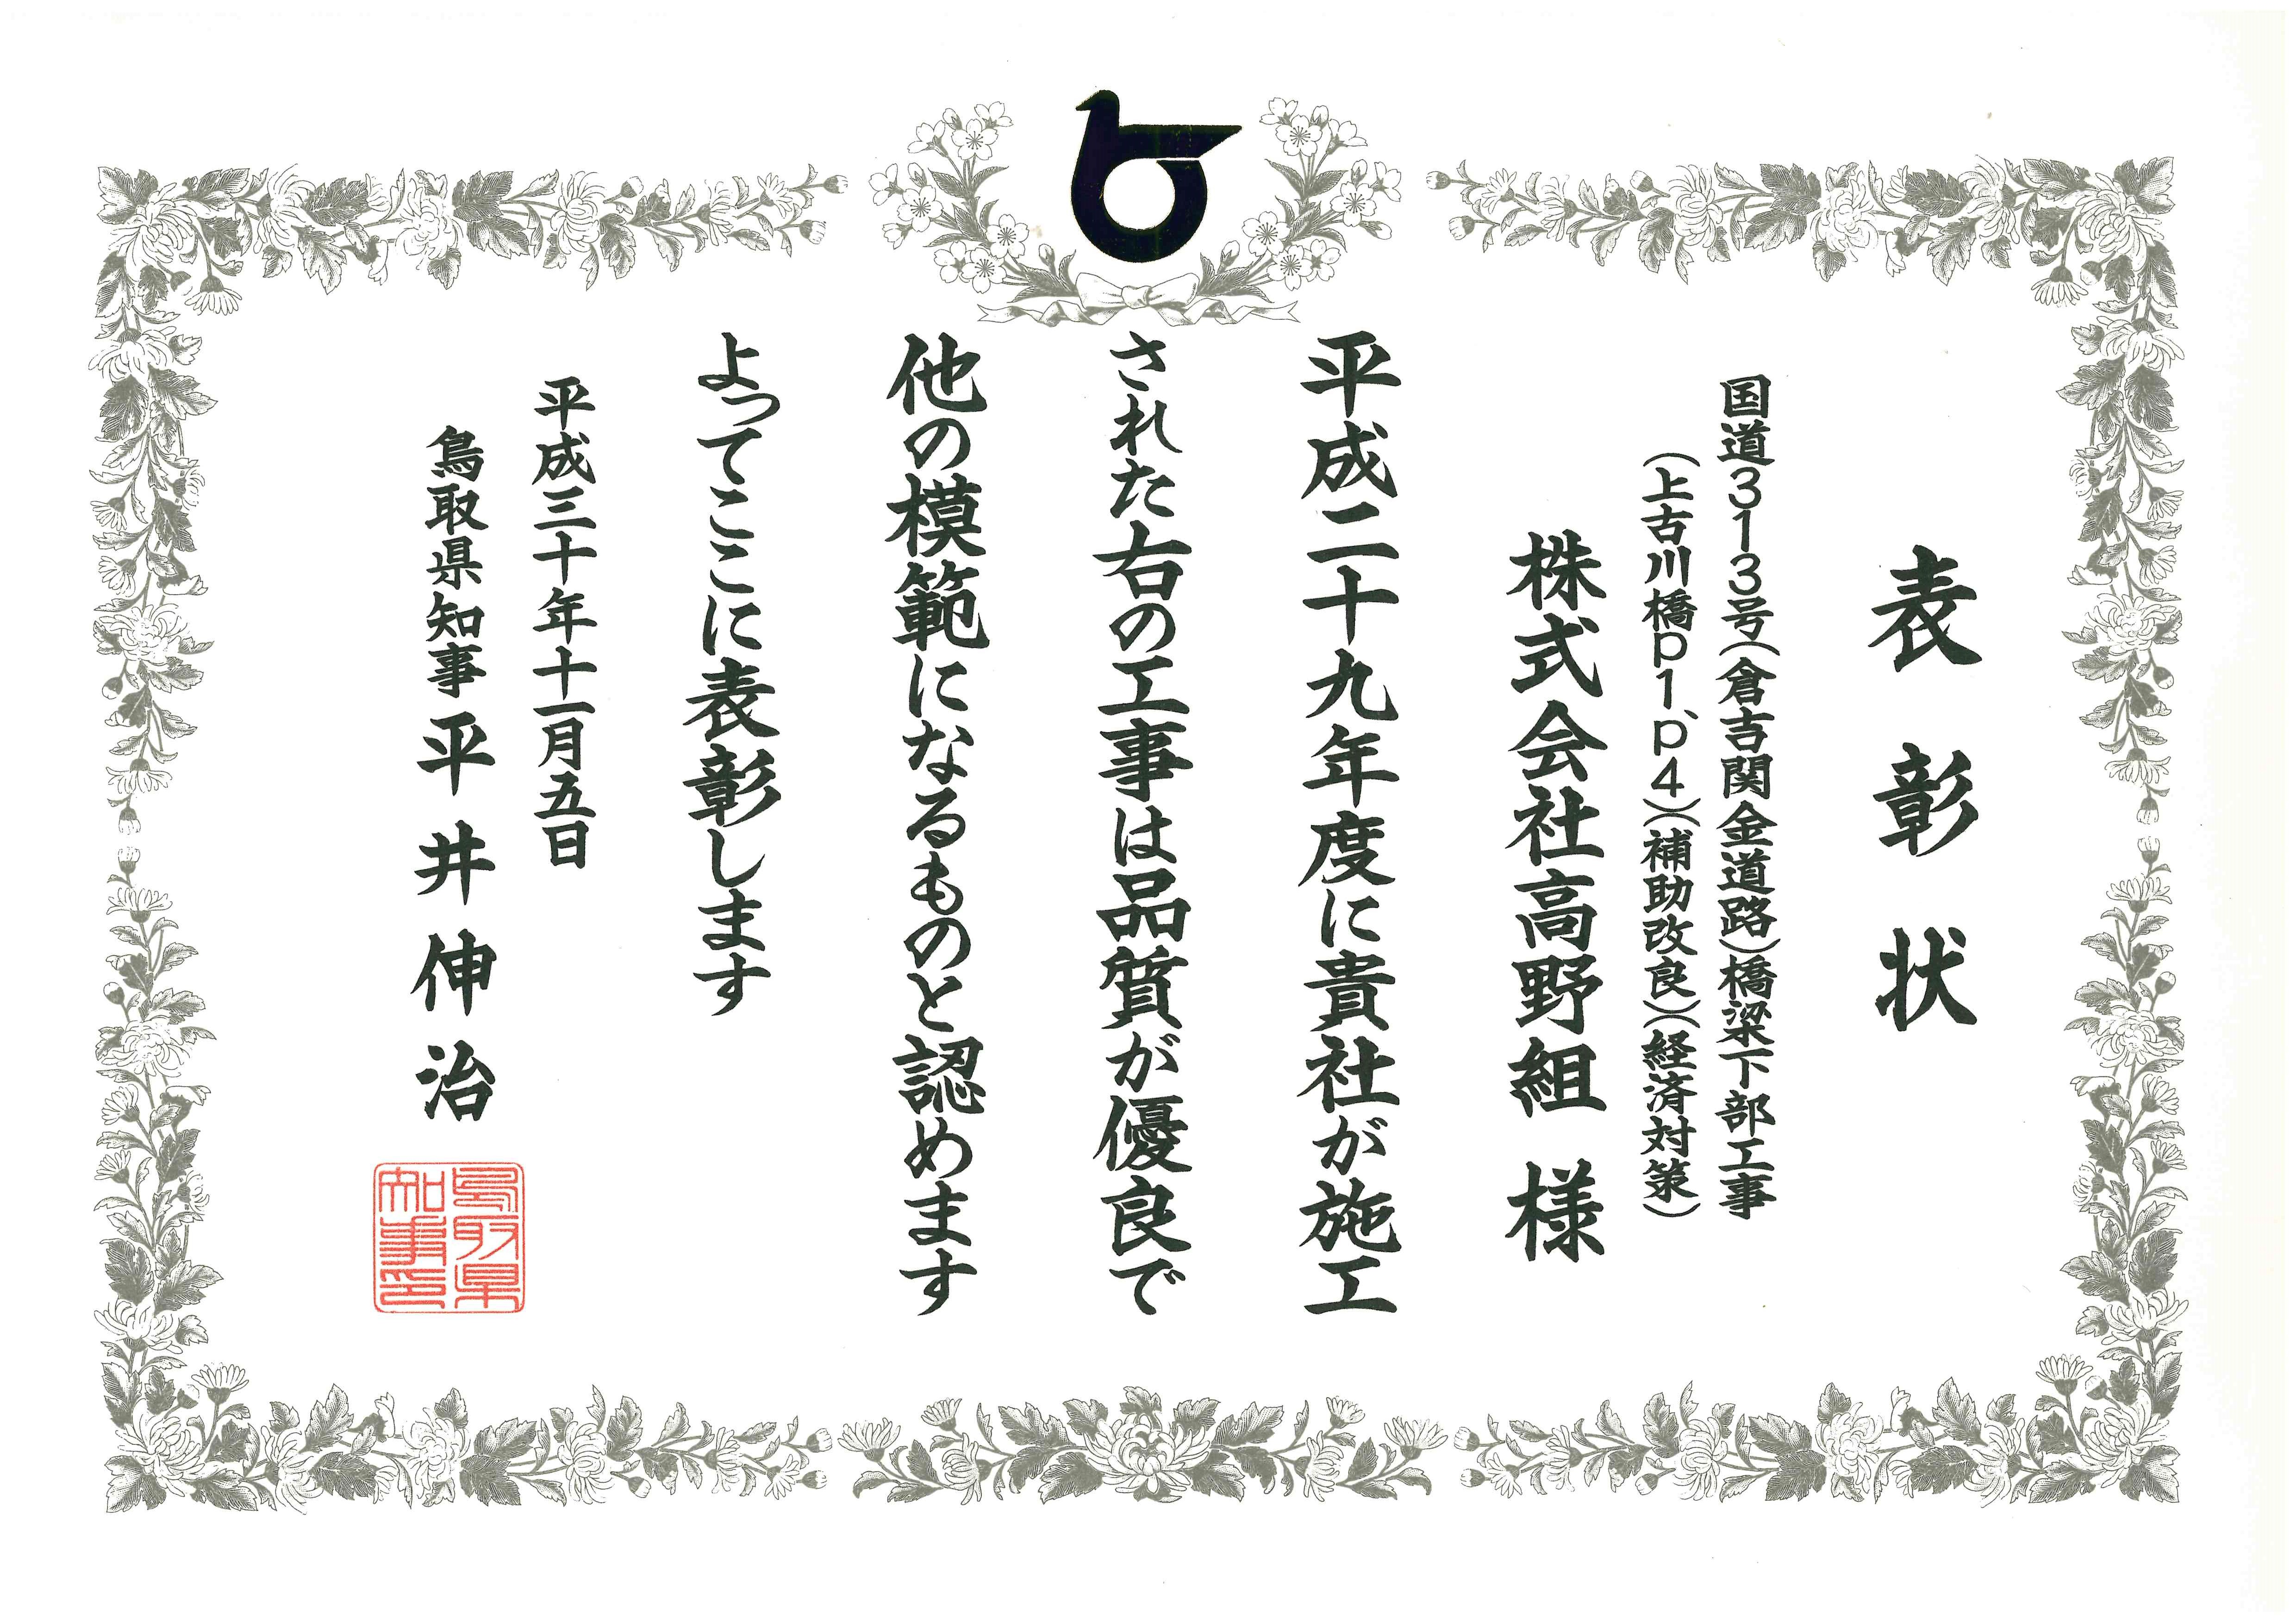 表彰状
国道313号(倉吉関金道路)橋梁下部工事
(上古川橋P1、P4)(補助改良)(経済対策)
株式会社高野組 様
平成二十九年度に貴社が施工
された右の工事は品質が優良で
他の模範になるものと認めます
よってここに表彰します
平成三十年十一月五日
鳥取県知事 平井伸治
鳥取県
知事印